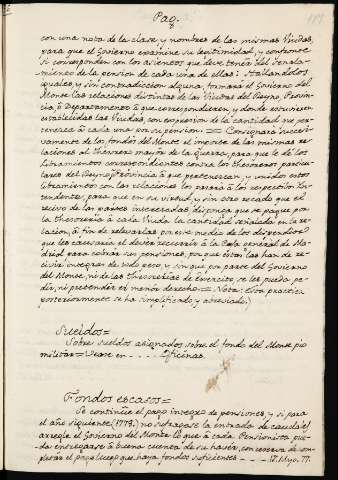 Pag.
con una nota de la clase y nombres de las mismas Viudas,
para que el Govierno examine su legitimidad, y confronte
si corresponden con los asientos que deve tener del señala-
miento de la pension de cada una de ellas: Hallandolos
iguales, y sin contradiccion alguna, formará el Govierno del
Monte las relaciones distintas de las Viudas del Reyno, Provin-
cia, ò Departamento à que correspondieren, y donde estuvieren
establecidas las Viudas, con expresion de la cantidad que per-
tenezca à cada una por su pension. = Consignará sucesi-
vamente de los fondos del Monte el importe de las mismas re-
laciones al Thesorero mayor de la Guerra, para que le dé los
libramientos correspondientes contra los Thesoreros particu-
lares del Reyno, Provincia à que pertenezcan, y unidos estos
libramientos con las relaciones los pasará à los respectivos Yn-
tendentes, para que en su virtud, y sin otro recado que el
recivo de las partes interesadas disponga que se pague por
la Thesoreria à cada Viuda la cantidad señalada en la re-
lacion, à fin de relevarlas por este medio de los dispendios
que les causaria el dever recurrir à la Caja general de Ma-
drid para cobrar sus pensiones, por que estas las han de re-
civir integras de todo peso, y sin que por parte del Govierno
del Monte, ni de las Thesorerias de Exercito, se les pueda pe-
dir, ni pretender el menor derecho = Nota: Esta practica
posteriormente se ha simplificado y abreviado.)
Sueldos =
Sobre sueldos asignados sobre el fondo del Monte pio
militar = Vease en . . . . Oficinas.
Fondos escasos =
Se continúe el pago integro de pensiones, y si para
el año siguiente (1778.) no sufragase la entrada de caudal el
arregle el Govierno del Monte lo que à cada Pensionista pue-
da entregarse à buena cuenta de su haver, con reserva de com-
pletar el pago luego que haya fondos suficientes - - - 17. Mayo. 77.